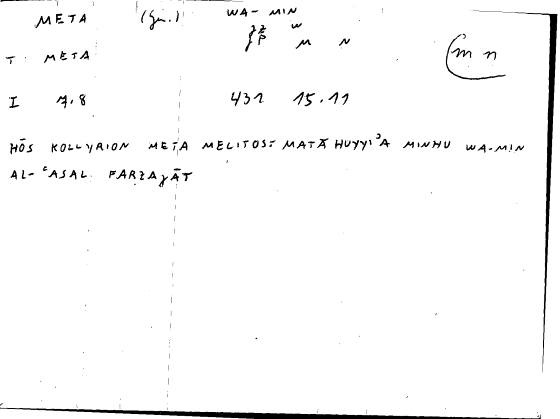 META (Gen.) WA-MIN
W
M N
T META (m n
I 7.8 431 15.11
HŌS KOLLYRION META MELITOS: MATĀ HUYYIʾA MINHU WA-MIN
AL-ʿASAL FARZAǧĀT